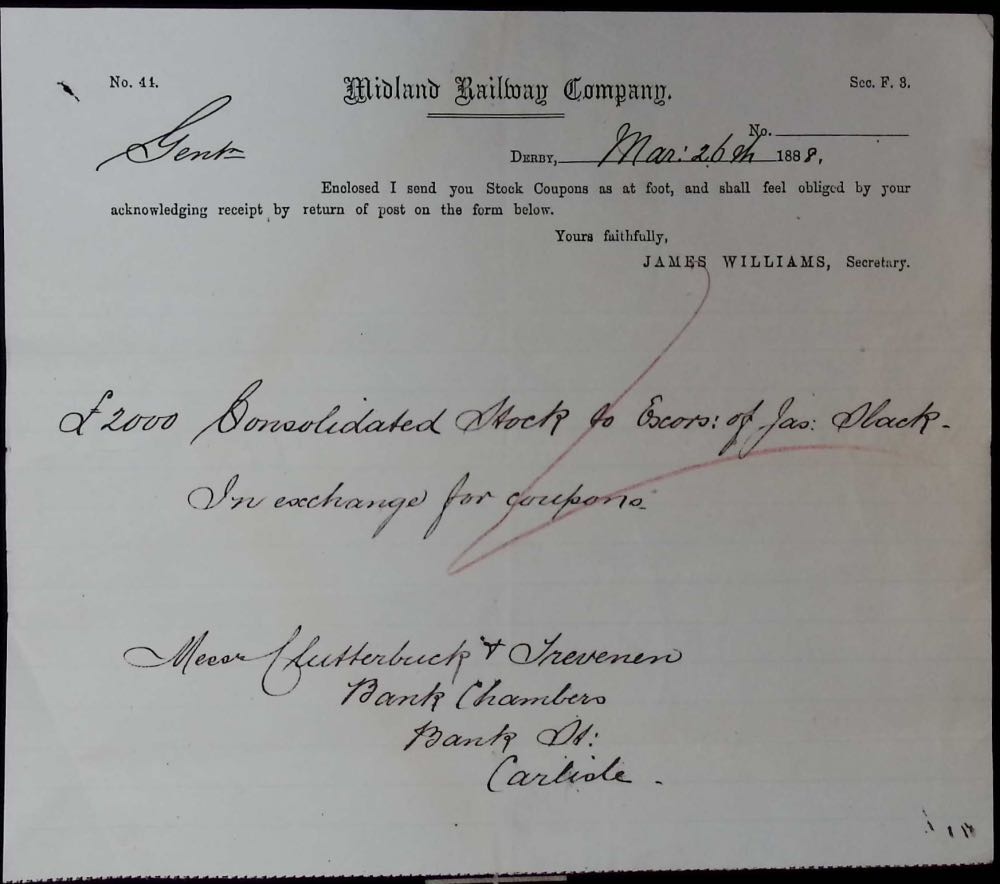 No. 41.
Midland Railway Company.
Sec. F. 3.
No.
Gentn
Derby, Mar: 26th 1888,
Enclosed I send you Stock Coupons as at foot, and shall feel obliged by your
acknowledging receipt by return of post on the form below.
Yours faithfully,
JAMES WILLIAMS, Secretary.
£2000 Consolidated Stock to Excors: of Jas: Slack.
In exchange for coupons.
Messr Clutterbuck & Trevenen
Bank Chambers
Bank St:
Carlisle.